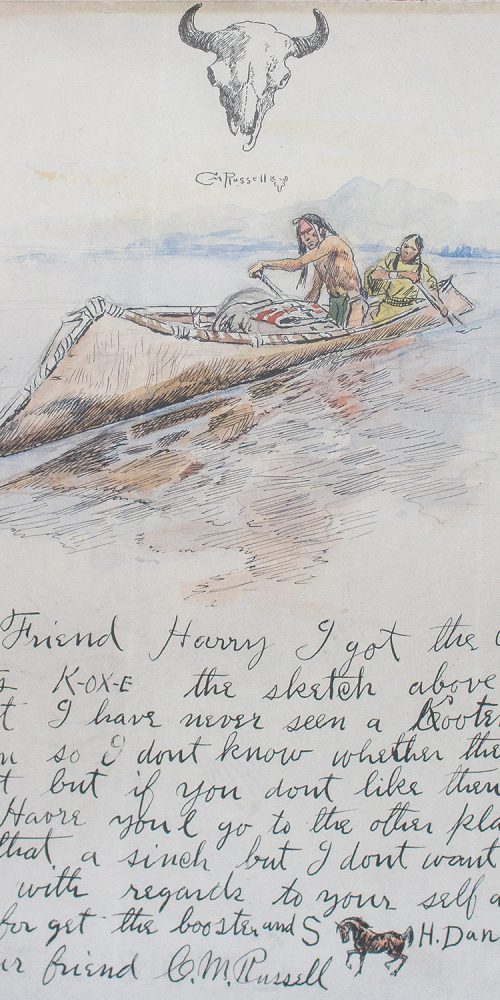 CMRussell
Friend Harry I got the
K-OX-E the sketch above
I have never seen a Kooten
so I dont know whether the
but if you dont like them
Havre youl go to the other pla
that a sinch but I dont want
with regards to your self a
for get the booster and S H. Dan
ur friend C.M. Russell